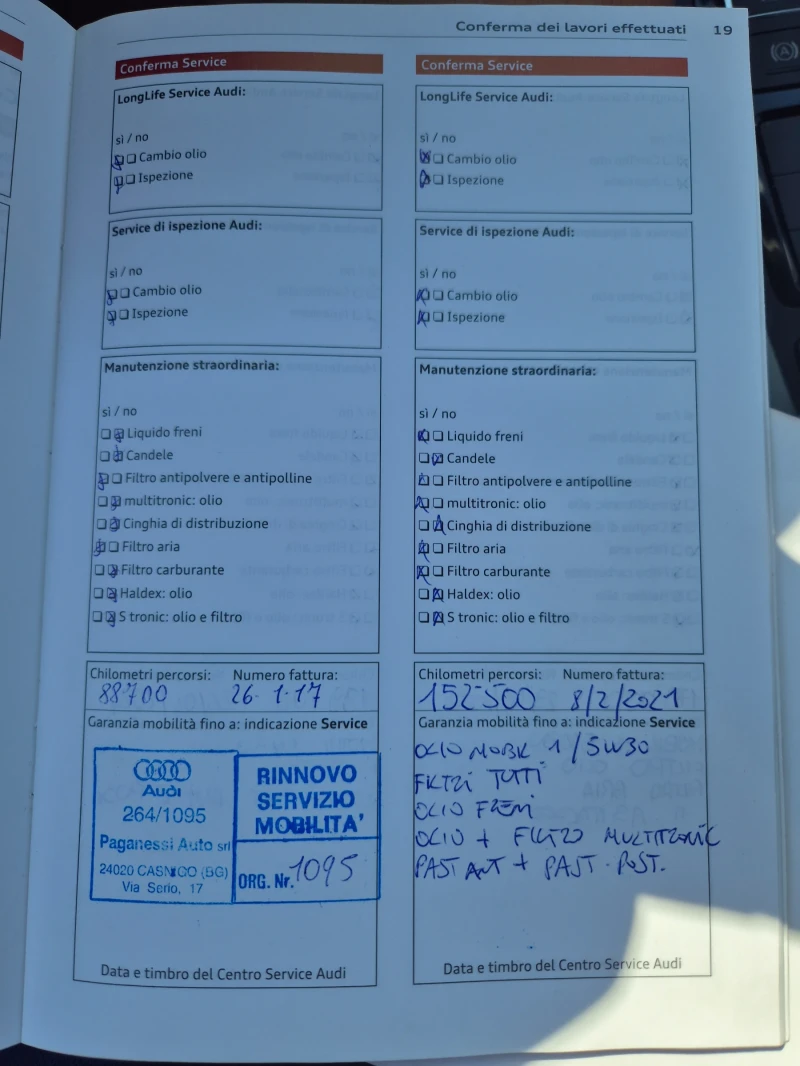 Conferma dei lavori effettuati 19
Conferma Service
LongLife Service Audi:
sì / no
Cambio olio
Ispezione
Service di ispezione Audi:
sì / no
Cambio olio
Ispezione
Manutenzione straordinaria:
sì / no
Liquido freni
Candele
Filtro antipolvere e antipolline
multitronic: olio
Cinghia di distribuzione
Filtro aria
Filtro carburante
Haldex: olio
S tronic: olio e filtro
Chilometri percorsi: Numero fattura:
88700 26-1-17
Garanzia mobilità fino a: indicazione Service
Audi
264/1095
Paganessi Auto srl
24020 CASNIGO (BG)
Via Serio, 17
RINNOVO
SERVIZIO
MOBILITA'
ORG. Nr. 1095
Data e timbro del Centro Service Audi
Conferma Service
LongLife Service Audi:
sì / no
Cambio olio
Ispezione
Service di ispezione Audi:
sì / no
Cambio olio
Ispezione
Manutenzione straordinaria:
sì / no
Liquido freni
Candele
Filtro antipolvere e antipolline
multitronic: olio
Cinghia di distribuzione
Filtro aria
Filtro carburante
Haldex: olio
S tronic: olio e filtro
Chilometri percorsi: Numero fattura:
152500 8/2/2021
Garanzia mobilità fino a: indicazione Service
OLIO MOBIL 1 / 5W30
FILTRI TUTTI
OLIO FRENI
OLIO + FILTRO MULTITRONIC
PAST ANT + PAST. POST.
Data e timbro del Centro Service Audi